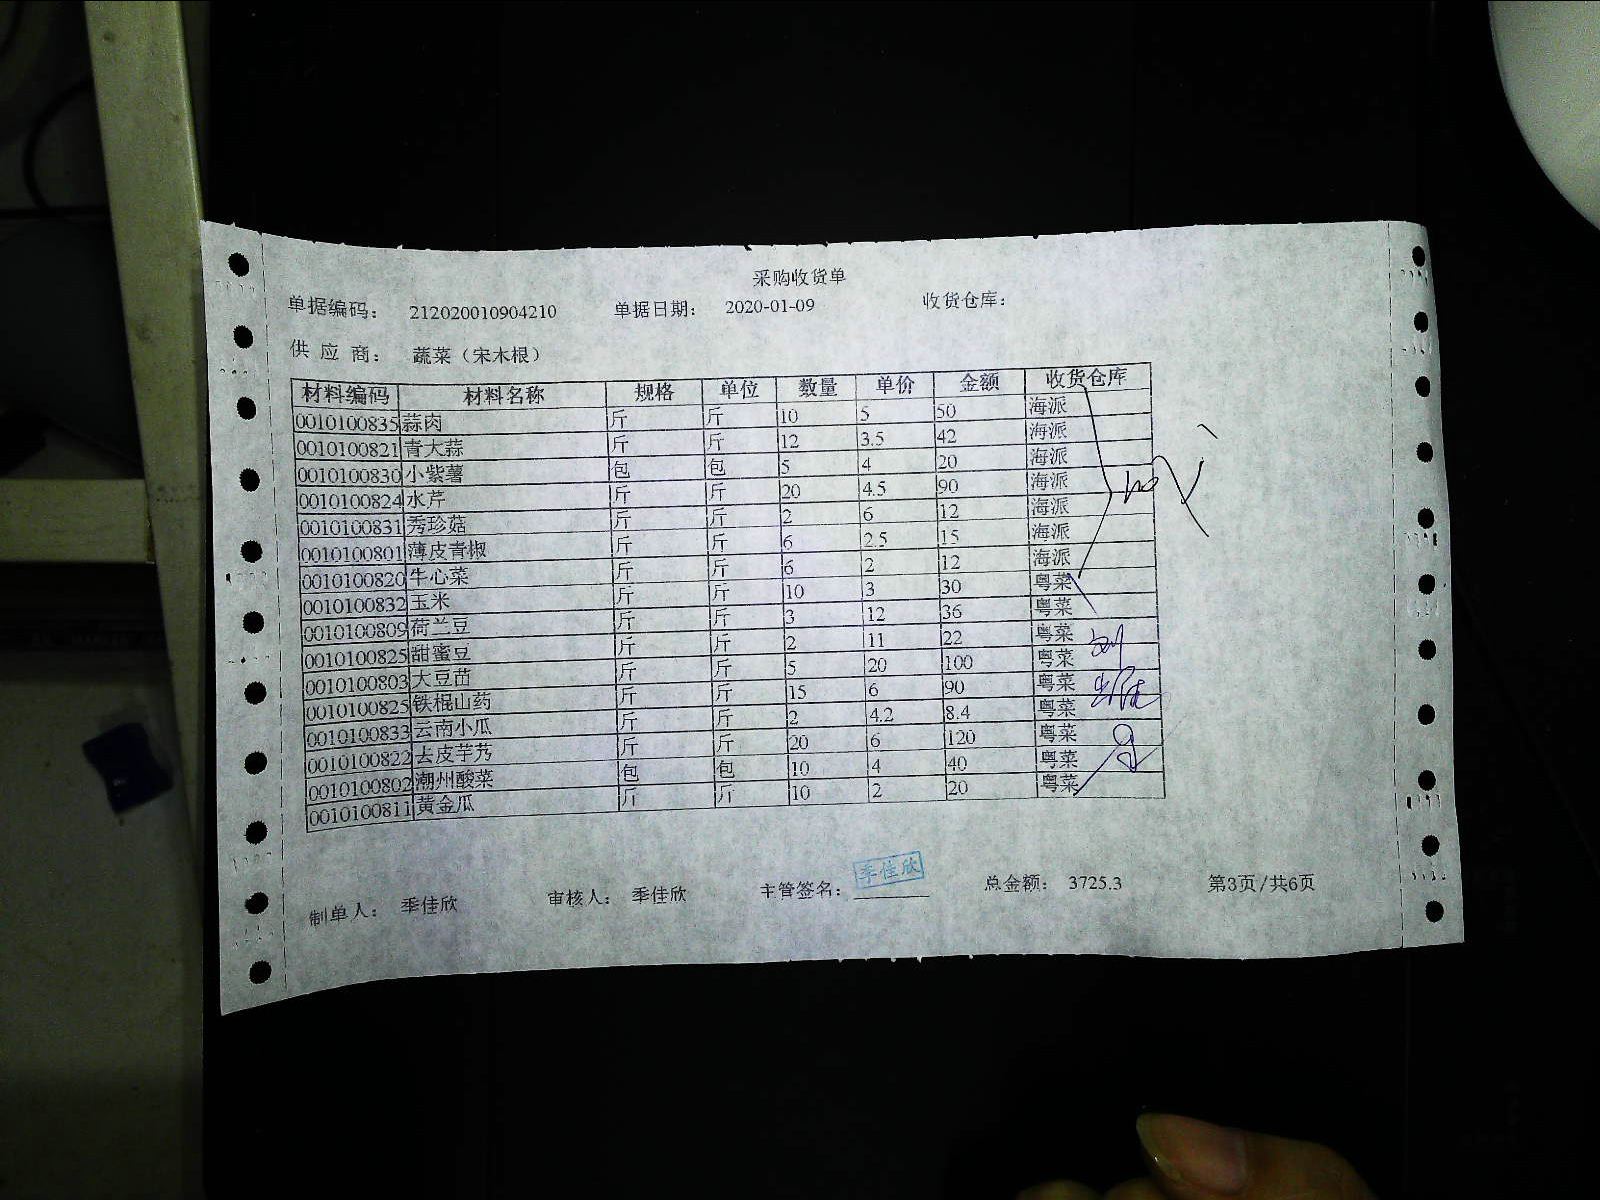 采购收货单
单据编码: 212020010904210 单据日期: 2020-01-09 收货仓库:
供 应 商: 蔬菜（宋木根）
材料编码 材料名称 规格 单位 数量 单价 金额 收货仓库
0010100835 蒜肉 斤 斤 10 5 50 海派
0010100821 青大蒜 斤 斤 12 3.5 42 海派
0010100830 小紫薯 包 包 5 4 20 海派
0010100824 水芹 斤 斤 20 4.5 90 海派
0010100831 秀珍菇 斤 斤 2 6 12 海派
0010100801 薄皮青椒 斤 斤 6 2.5 15 海派
0010100820 牛心菜 斤 斤 6 2 12 海派
0010100832 玉米 斤 斤 10 3 30 粤菜
0010100809 荷兰豆 斤 斤 3 12 36 粤菜
0010100825 甜蜜豆 斤 斤 2 11 22 粤菜
0010100803 大豆苗 斤 斤 5 20 100 粤菜
0010100825 铁棍山药 斤 斤 15 6 90 粤菜
0010100833 云南小瓜 斤 斤 2 4.2 8.4 粤菜
0010100822 去皮芋艿 斤 斤 20 6 120 粤菜
0010100802 潮州酸菜 包 包 10 4 40 粤菜
0010100811 黄金瓜 斤 斤 10 2 20 粤菜
制单人: 季佳欣 审核人: 季佳欣 主管签名: 季佳欣 总金额: 3725.3 第3页/共6页